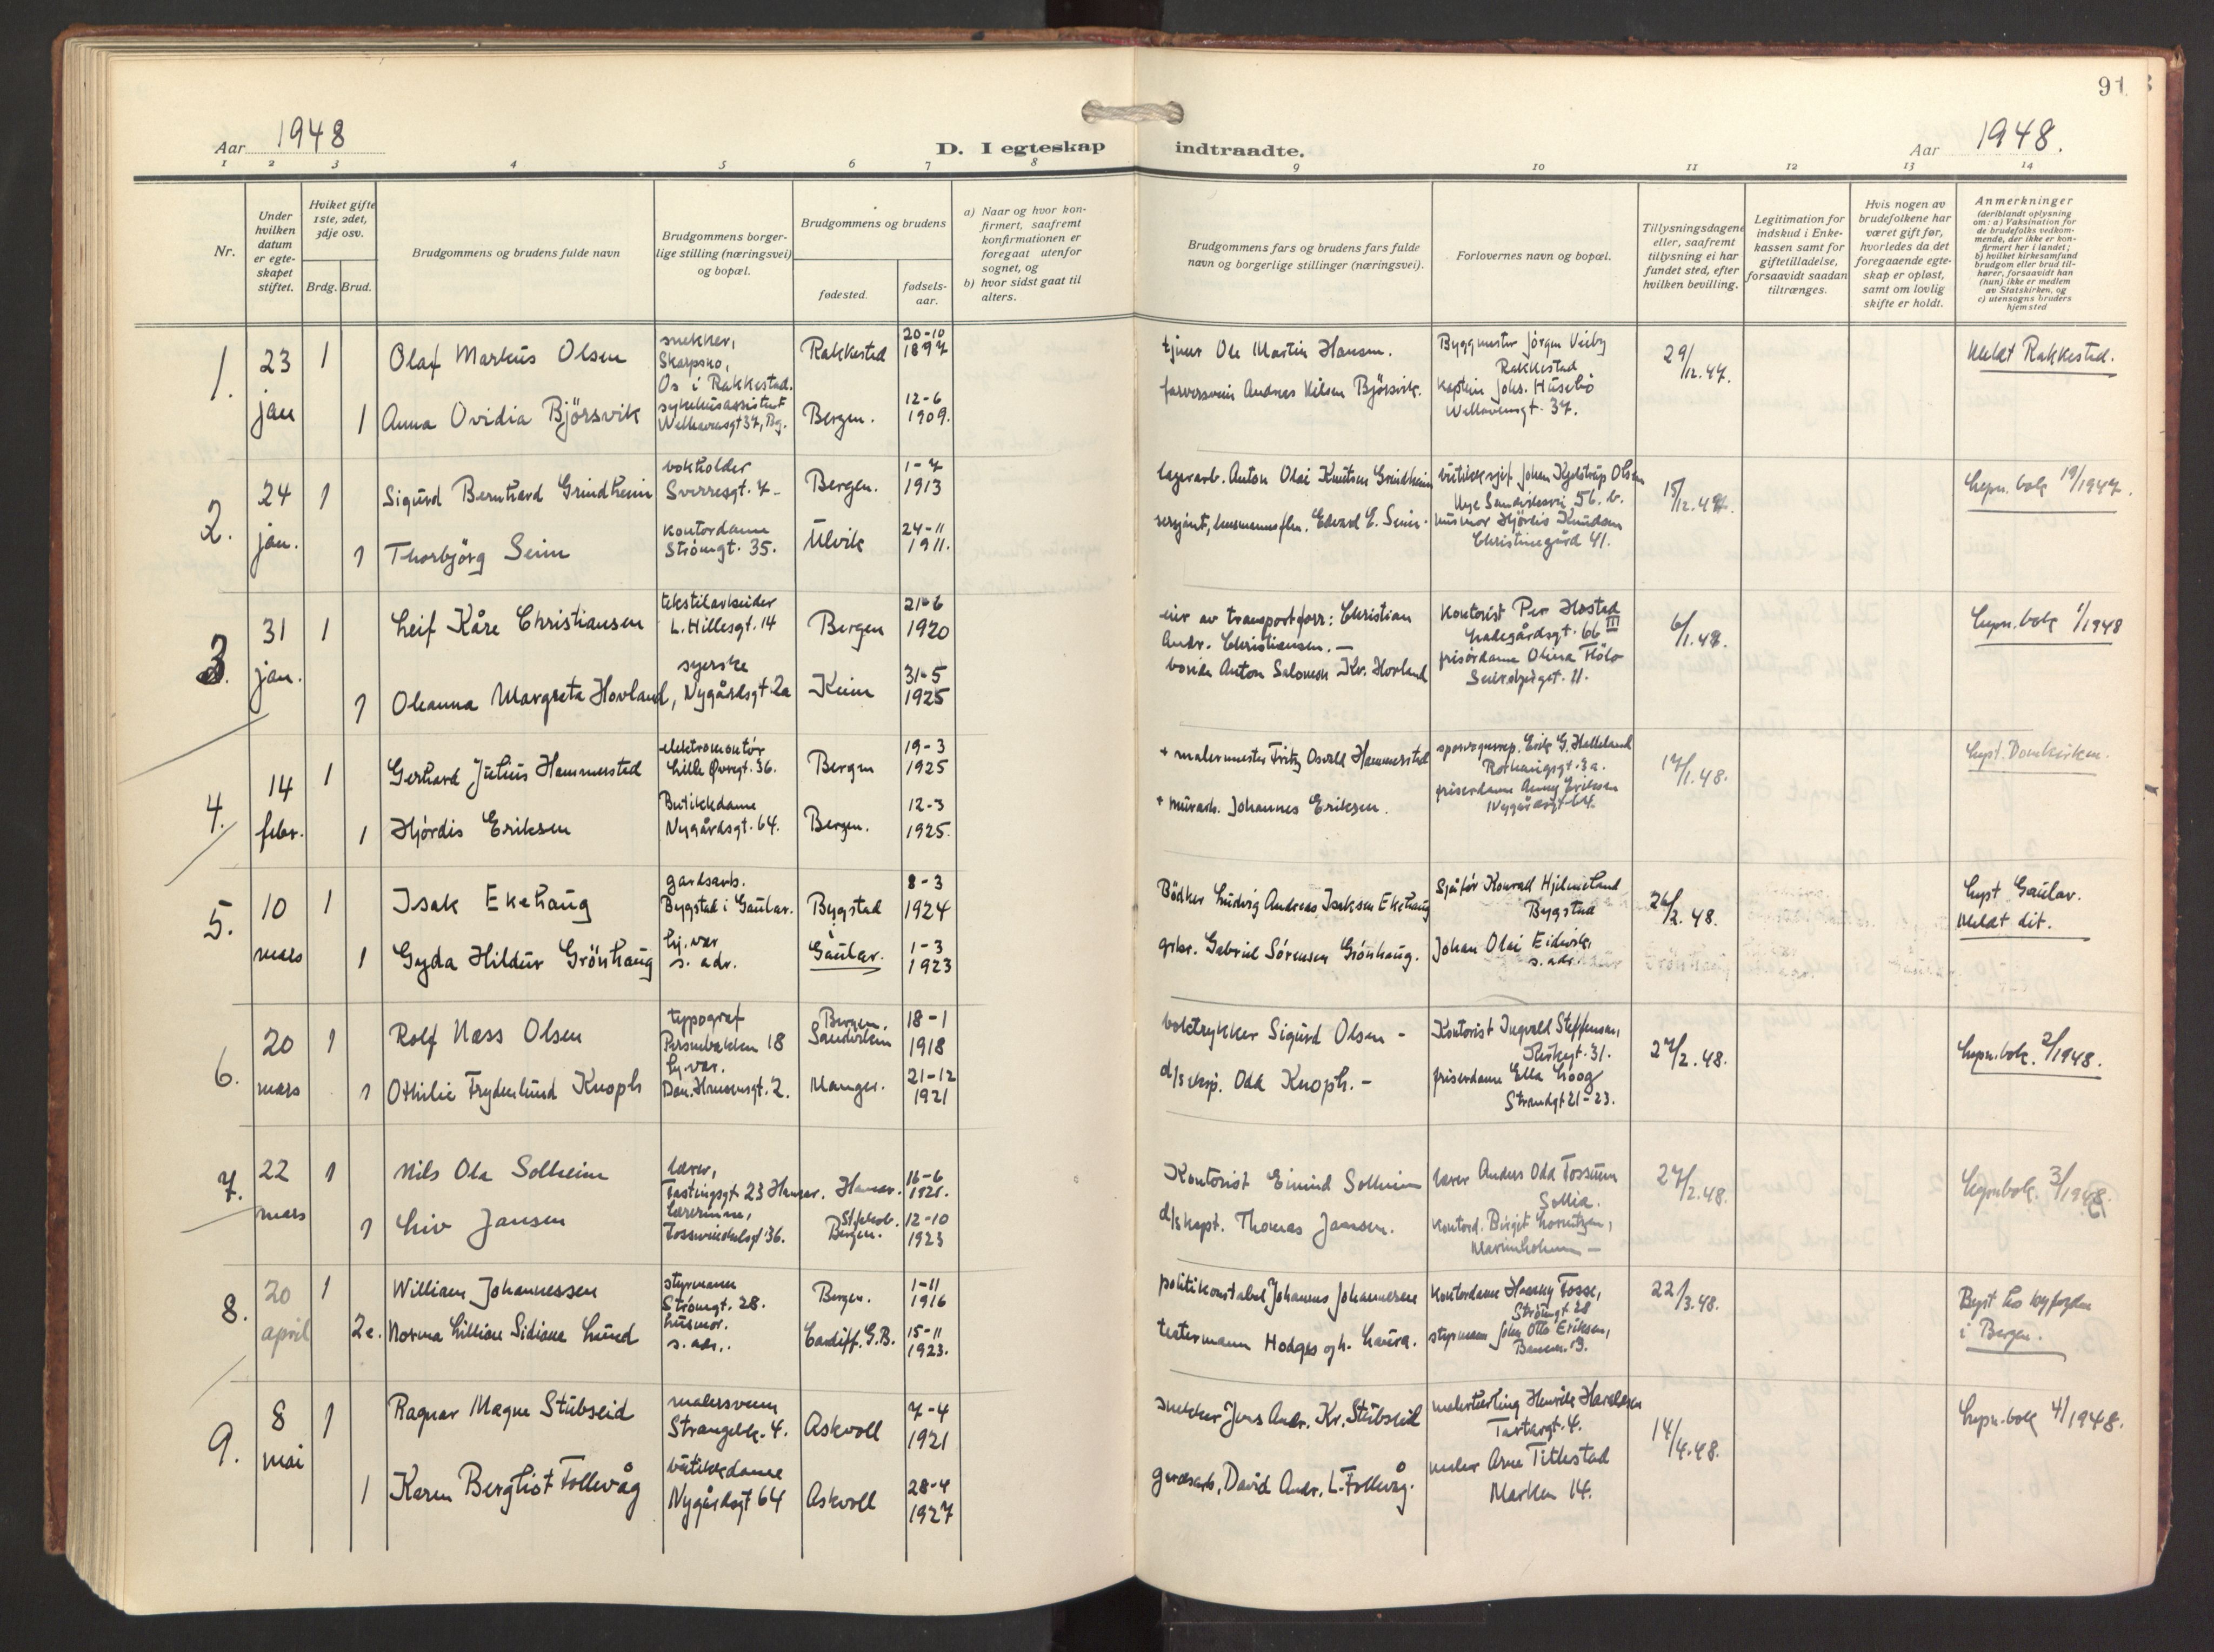 91
Aar 1948
D. I egteskap indtraadte.
Aar 1948.
1 2 3 4 5 6 7 8 9 10 11 12 13 14
Nr.
Under hvilken datum er egteskapet stiftet.
Hviket gifte 1ste, 2det, 3dje osv.
Brdg. Brud.
Brudgommens og brudens fulde navn
Brudgommens borgerlige stilling (næringsvei) og bopæl.
Brudgommens og brudens
fødested.
fødselsaar.
a) Naar og hvor konfirmert, saafremt konfirmationen er foregaat utenfor sognet, og
b) hvor sidst gaat til alters.
Brudgommens fars og brudens fars fulde navn og borgerlige stillinger (næringsvei).
Forlovernes navn og bopæl.
Tillysningsdagene eller, saafremt tillysning ei har fundet sted, efter hvilken bevilling.
Legitimation for indskud i Enkekassen samt for giftetilladelse, forsaavidt saadan tiltrænges.
Hvis nogen av brudefolkene har været gift før, hvorledes da det foregaaende egteskap er opløst, samt om lovlig skifte er holdt.
Anmerkninger
(deriblandt oplysning om: a) Vaksination for de brudefolks vedkommende, der ikke er konfirmert her i landet; b) hvilket kirkesamfund brudgom eller brud tilhører, forsaavidt han (hun) ikke er medlem av Statskirken, og c) utensogns bruders hjemsted
1. 23 jan 1 Olaf Markus Olsen snekker, Skarpsno, Os i Rakkestad. Rakkestad 20-10 1897
1 Anna Ovidia Björsvik sykehusassistent Welhavensgt 37, Bg. Bergen. 12-6 1909.
Ole Martin Hansen. Byggmester Jörgen Rakkestad 29/12.47. Meldt Rakkestad.
farversvein Andreas Nilsen Björsvik. kaptein Johs. Husebö Welhavensgt. 37.
2. 24 jan. 1 Sigurd Bernhard Grindheim bokholder Sverresgt. 7 Bergen. 1-7 1913
1 Thorbjörg Seim kontordame Strömgt. 35. Ulvik 24-11 1911.
lagerarb. Anton Olai Knutsen Grindheim butikksjef Johan Olsen Nye Sandviksvei 56. b. 15/12.47. Lysn. bok 19/1947.
sersjant, Edvard E. Seim. husmor Hjördis Knudsen Christinegård 41.
3. 31 jan. 1 Leif Kåre Christiansen tekstilarbeider L. Hillesgt. 14 Bergen 21-6 1920
1 Oleanna Margreta Hovland, syerske Nygårdsgt. 2a 31-5 1925
eier av transportforr: Christian Andr. Christiansen. — Kontorist Per Hostad Ladegårdsgt. 66 III 6/1.48. Lysn. bok 1/1948
bonde Anton Salomon Kr. Hovland frisördame Olina 11.
4. 14 febr. 1 Gerhard Julius Hammersted elektromontör Lille Øvregt. 36. Bergen 19-3 1925
1 Hjördis Eriksen Butikkdame Nygårdsgt. 64. Bergen. 12-3 1925.
+ malermester Fritz Osvald Hammersted Erik G. Helleland 3a. 17/1.48. Lyst. Domkirken.
+ murarb. Johannes Eriksen. friserdame Anny Eriksen Nygårdsgt 64.
5. 10 mars 1 Isak Ekehaug gardsarb. Bygstad i Gaular. Bygstad 8-3 1924
1 Gyda Hildur Grönhaug hj.vær s. adr. Gaular. 1-3 1923
Bödker Ludvig Andreas Isaksen Ekehaug Sjåför Konrad Hjelmeland Bygstad 26/2.48. Lyst Gaular. Meldt dit.
grbr. Gabriel Sörensen Grönhaug. Johan Olai Eidevik, s. adr.
6. 20 mars 1 Rolf Næss Olsen typograf 18 Bergen, Sandviken 18-1 1918
1 Othilie Frydenlund Knoph hj.vær. Dan. Hansensgt. 2. Manger. 21-12 1921
boktrykker Sigurd Olsen - Kontorist Ingvald Steffensen, 31. 27/2.48. Lysn.bok. 2/1948.
d/s eksp. Odd Knoph. - friserdame Ella Loog Strandgt 21-23.
7. 22 mars 1 Nils Ola Solheim lærer, 23 Hamar. Hamar. 16-6
1 Liv Jansen lærerinne, Fosswinckelsgt 36. Bergen. 12-10 1923
Kontorist Eivind Solheim lærer Anders Odd Fossum Sollia. 27/2.48. Lysn.bok. 3/1948.
d/s kapt. Thomas Jansen. Kontord. Birgit Lorentzen, Marineholmen —
8. 20 april 1 William Johannessen styrmann Strömgt. 28. Bergen. 1-11 1916
2e. Norma Lillian Sidiane Lund husmor. s. adr.. Cardiff. G.B. 15-11 1923.
politikonstabel Johannes Johannessen Kontordame Fosse, Strömgt 28 22/3.48. Lyst hos byfogden i Bergen.
teatermann Hodges og h. Laura. styrmann John Otto Eriksen,
9. 8 mai 1 Ragnar Magne Stubseid malersvenn Strangebk. 4. Askvoll 7-4 1921
1 Karen Bergliot Follevåg butikkdame Nygårdsgt 64 Askvoll 28-4 1927
snekker Jens Andr. Kr. Stubseid malerlærling Henrik 4. 14/4.48. Lysn.bok 4/1948.
gardsarb. David Andr. L. Follevåg. maler Arne Titlestad Marken 14.